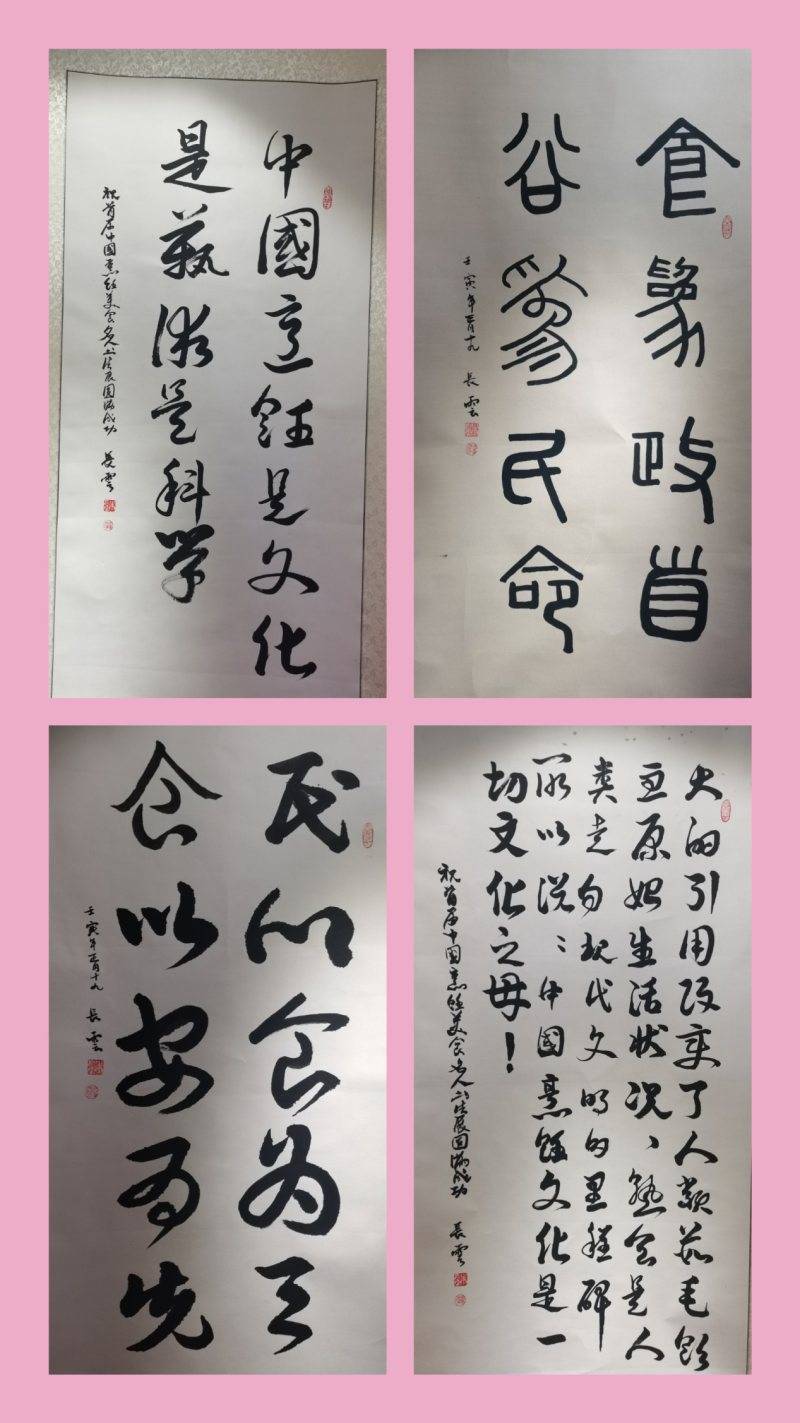 中國烹飪是文化
是藝術是科學
祝首届中国烹饪美食名人书法展圆满成功
長雲
食為政首
谷為民命
壬寅年正月十九
長雲
民以食为天
食以安为先
壬寅年正月十九
長雲
火的引用改变了人类茹毛飲
血原始生活状况、熟食是人
类走向现代文明的里程碑
所以说：中國烹飪文化是一
切文化之母！
祝首届中国烹饪美食名人书法展圆满成功
長雲